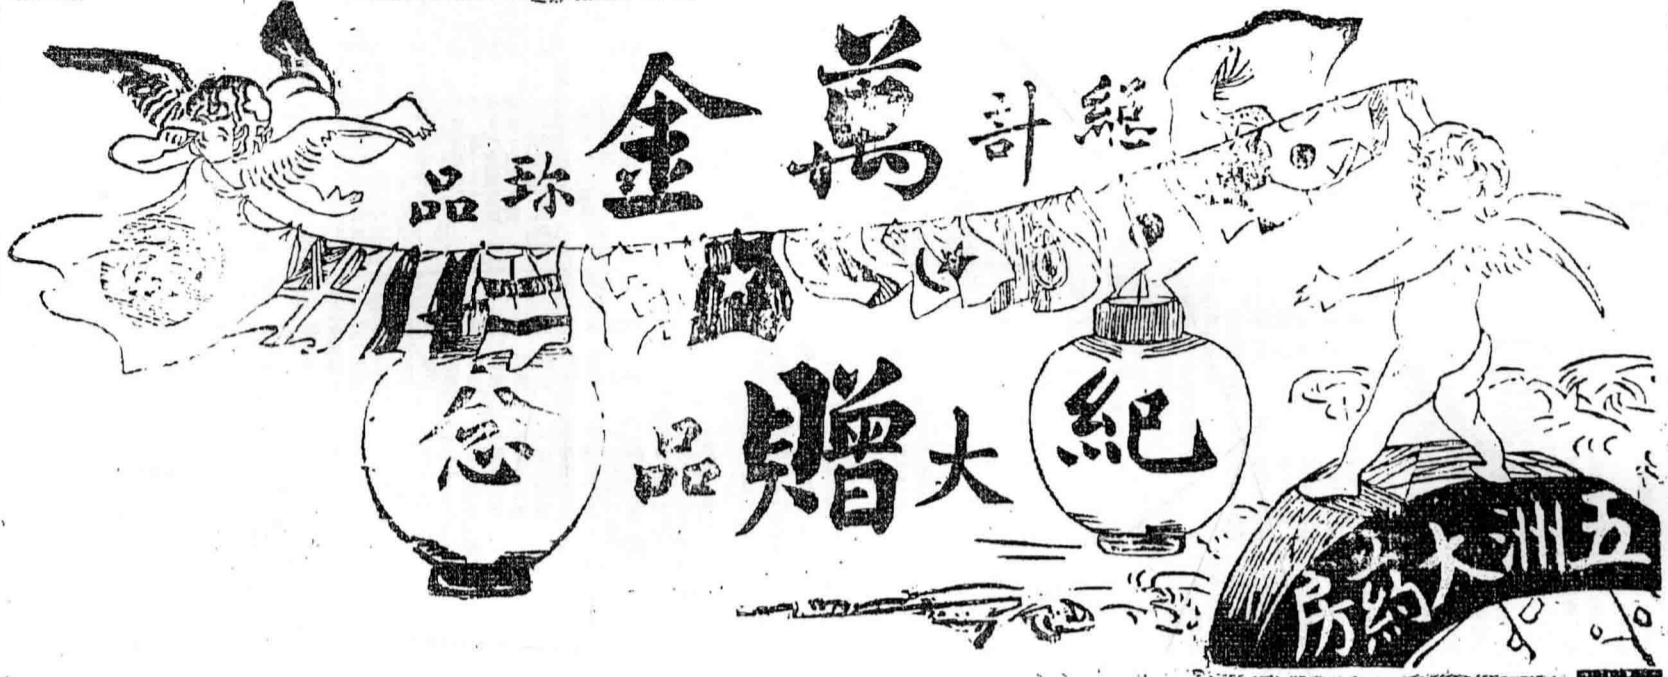 總計萬金珍品
紀念大贈品
五洲大葯房